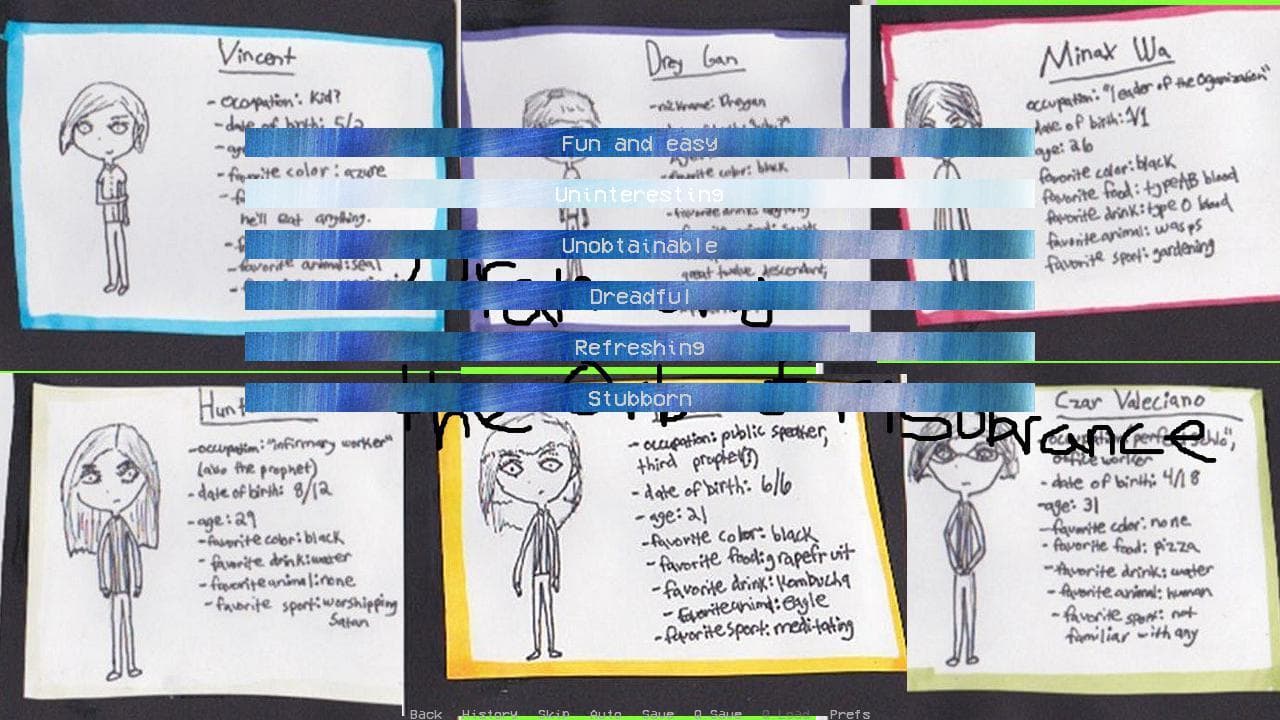 Vincent
- occupation: Kid?
- date of birth: 5/2
- favorite color: azure
he'll eat anything.
- favorite animal: seal
Drey Gan
- nickname: Dreygan
favorite color: black
great twelve descendant,
Minax Wa
occupation: "leader of the Organization"
date of birth: 1/1
age: 26
favorite color: black
favorite food: type AB blood
favorite drink: type O blood
favorite animal: wasps
favorite sport: gardening
Fun and easy
Uninteresting
Unobtainable
Dreadful
Refreshing
Stubborn
the
Hunt
- occupation: "infirmary worker"
(aka the prophet)
- date of birth: 8/12
- age: 29
- favorite color: black
- favorite drink: water
- favorite animal: none
- favorite sport: worshipping
Satan
- occupation: public speaker,
third prophet(?)
- date of birth: 6/6
- age: 21
- favorite color: black
- favorite food: grapefruit
- favorite drink: Kombucha
- favorite animal: Eagle
- favorite sport: meditating
Czar Valeciano
office worker
- date of birth: 4/18
- age: 31
- favorite color: none
- favorite food: pizza
- favorite drink: water
- favorite animal: human
- favorite sport: not
familiar with any
Back History Skip Auto Save Q.Save Q.Load Prefs